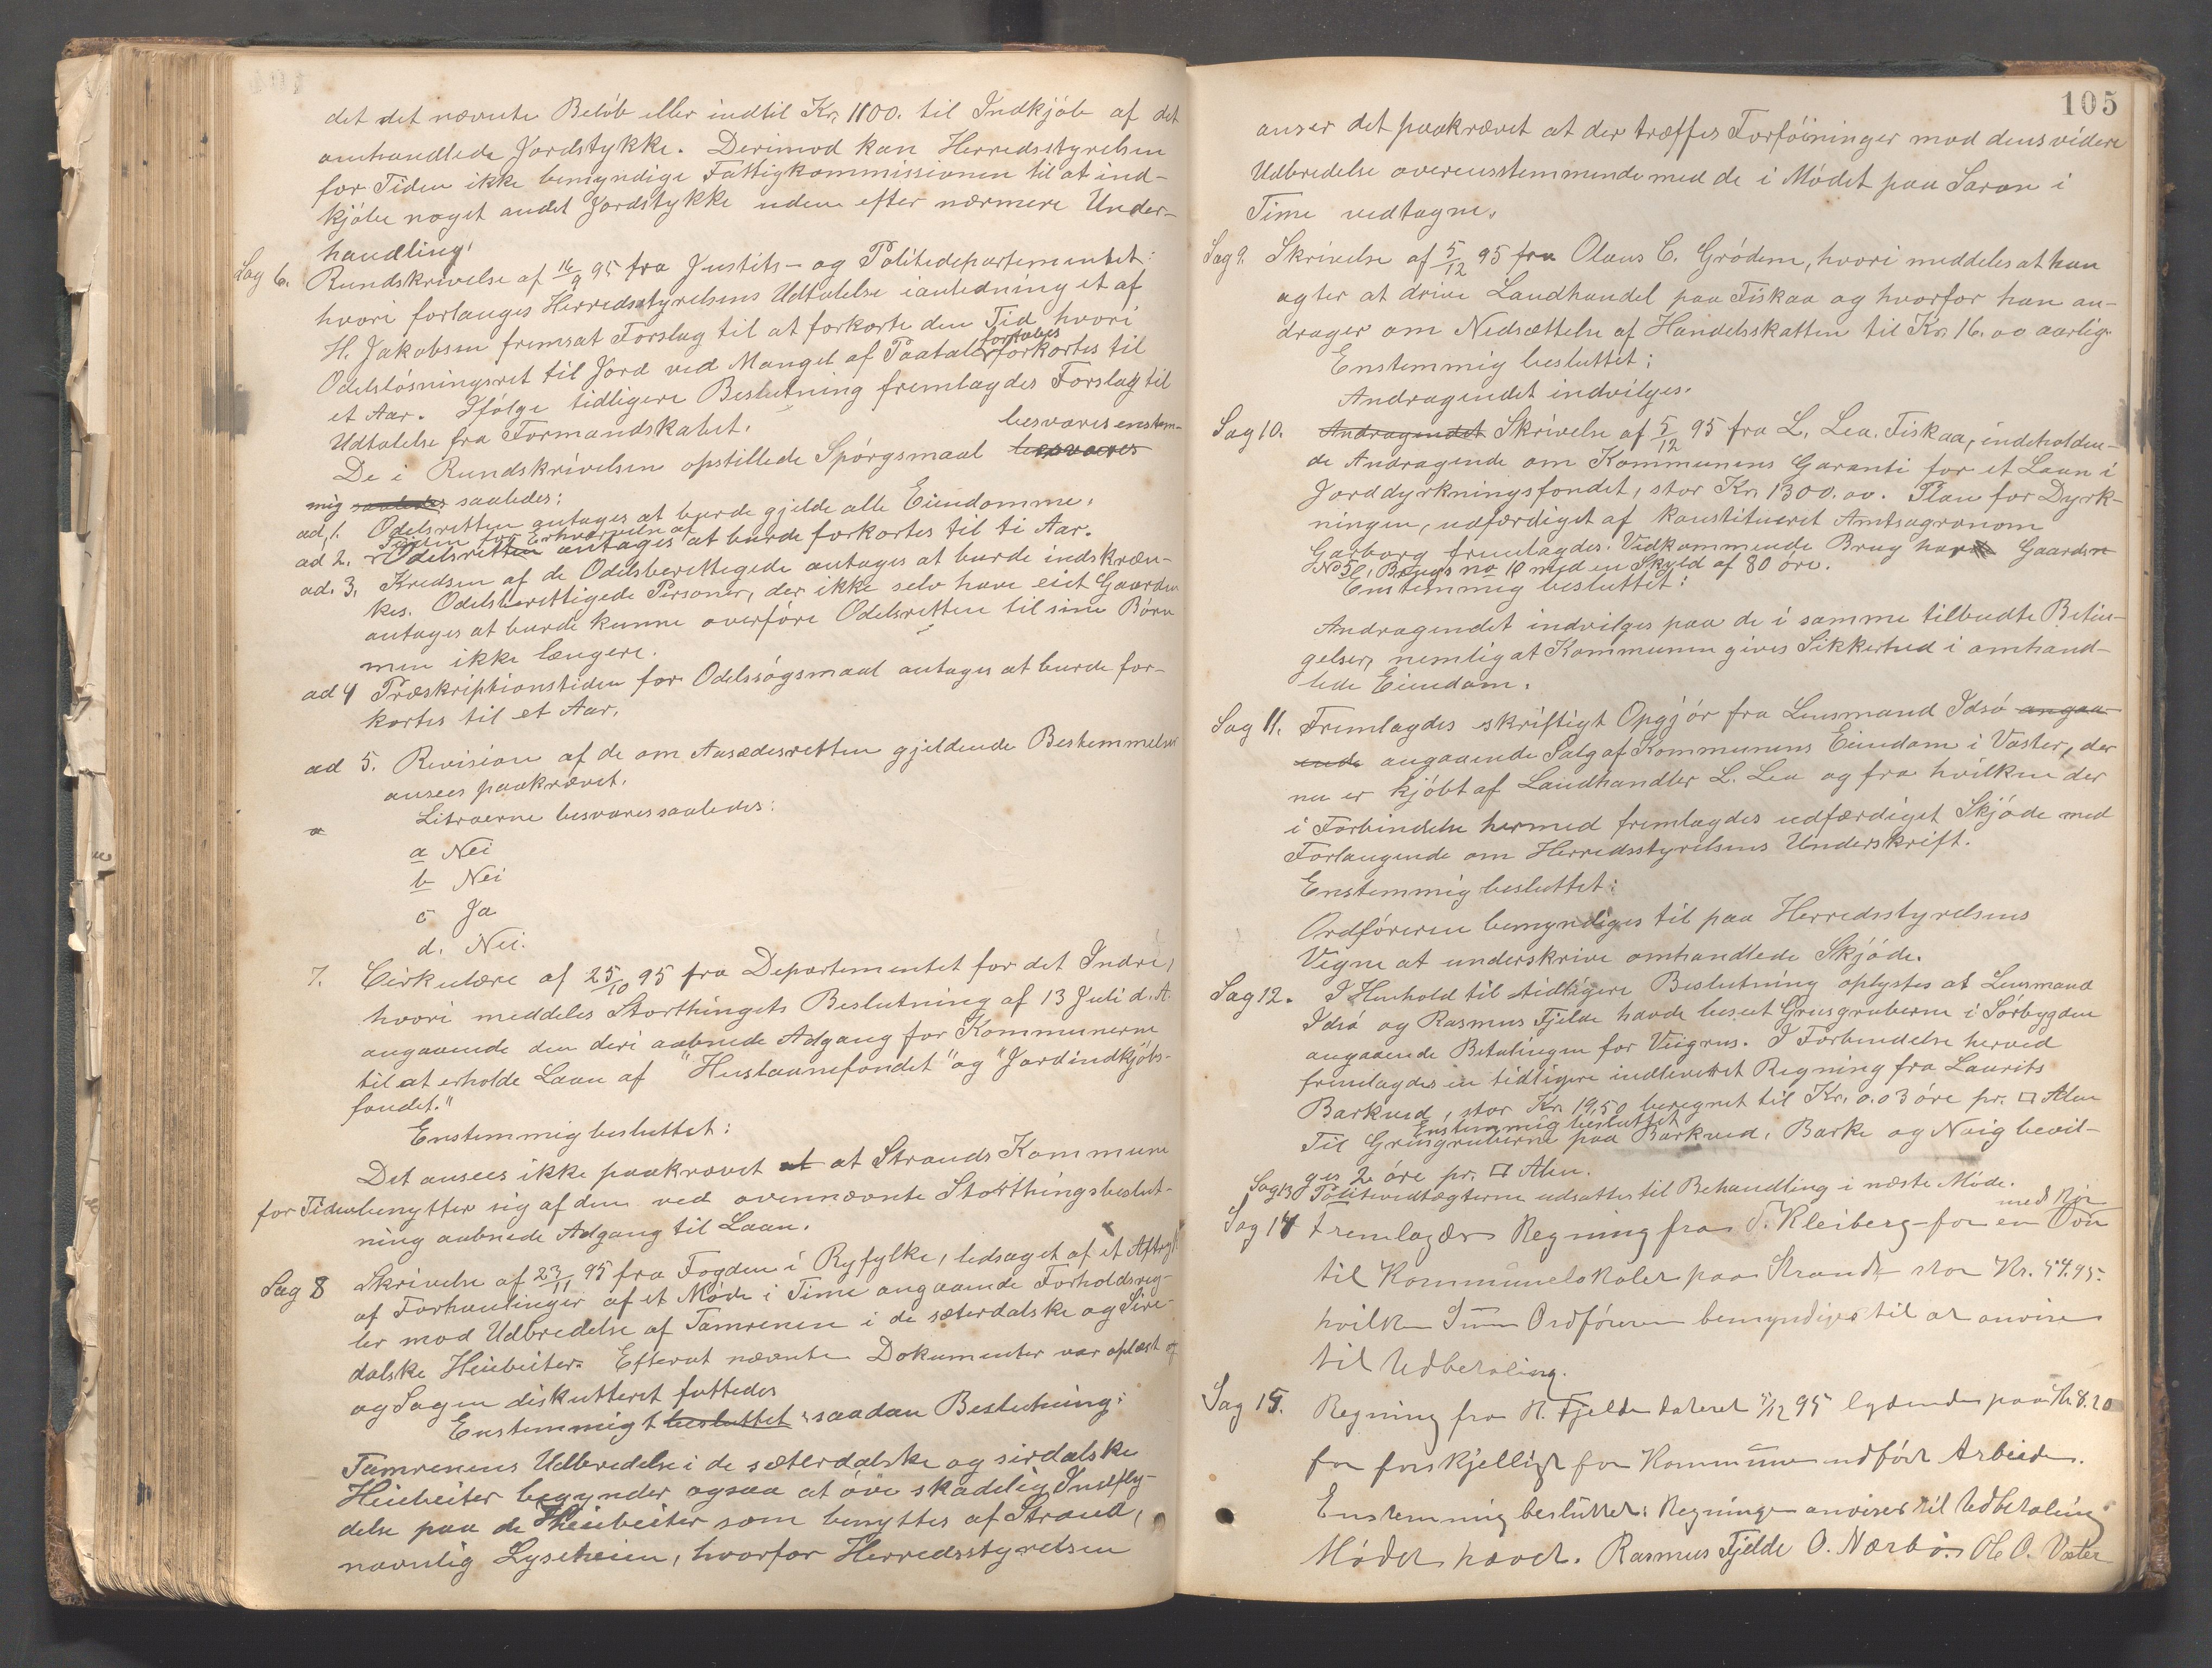 det det nævnte Beløb eller indtil Kr. 1100. til Indkjøb af det
omhandlede Jordstykke. Derimod kan Herredsstyrelsen
for Tiden ikke bemyndige Fattigkommissionen til at ind-
kjøbe noget andet Jordstykke uden efter nærmere Under-
handling.
Sag 6. Rundskrivelse af 16/9 95 fra Justits- og Politidepartementet:
hvori forlanges Herredsstyrelsens Udtalelse ianledning et af
H. Jakobsen fremsat Forslag til at forkorte den Tid hvori
Odelsløsningsret til Jord ved Mangel af Paatale fortabes forkortes til
et Aar. Ifølge tidligere Beslutning fremlagdes Forslag til
Udtalelse fra Formandskabet.
De i Rundskrivelsen opstillede Spørgsmaal besvares besvares enstem-
mig saaledes saaledes:
ad. 1. Odelsretten antages at burde gjelde alle Eiendomme.
ad 2. Tiden for Erhvervelse af Odelsretten antages at burde forkortes til ti Aar.
ad. 3. Kredsen af de Odelsberettigede antages at burde indskræn-
kes. Odelsberettigede Personer, der ikke selv have eiet Gaarden
antages at burde kunne overføre Odelsretten til sine Børn
men ikke længere.
ad 4 Præskriptionstiden for Odelssøgsmaal antages at burde for-
kortes til et Aar.
ad 5. Revision af de om Aasædesretten gjeldende Bestemmelser
ansees paakrævet.
a Litraerne besvares saaledes:
a Nei
b Nei
c Ja
d. Nei.
7. Cirkulære af 25/10 95 fra Departementet for det Indre,
hvori meddeles Storthingets Beslutning af 13 Juli d. A.
angaaende den deri aabnede Adgang for Kommunerne
til at erholde Laan af "Huslaanefondet" og "Jordindkjøbs-
fondet."
Enstemmig besluttet:
Det ansees ikke paakrævet at at Strands Kommune
for Tiden benytter sig af den ved ovennævnte Storthingsbeslut-
ning aabnede Adgang til Laan.
Sag 8 Skrivelse af 23/11 95 fra Fogden i Ryfylke, ledsaget af et Aftryk
af Forhanlinger af et Møde i Time angaaende Forholdsreg-
ler mod Udbredelse af Tamrenen i de sæterdalske og Sire-
dalske Heiebeiter. Efterat nævnte Dokumenter var oplæst og
og Sagen diskutteret fattedes
Enstemmigt besluttet saadan Beslutning:
Tamrenens Udbredelse i de sæterdalske og sirdalske
Heiebeiter begynder ogsaa at øve skadelig Indfly-
delse paa de Heiebeiter som benyttes af Strand,
navnlig Lyseheien, hvorfor Herredsstyrelsen
105
anser det paakrævet at der træffes Forføininger mod dens videre
Udbredelse overensstemmende med de i Mødet paa Saron i
Time vedtagne.
Sag 9. Skrivelse af 5/12 95 fra Olaus C. Grødem, hvori meddeles at han
agter at drive Landhandel paa Fiskaa og hvorfor han an-
drager om Nedsættelse af Handelsskatten til Kr. 16.00 aarlig.
Enstemmig besluttet:
Andragendet indvilges.
Sag 10. Andragendet Skrivelse af 5/12 95 fra L. Lea. Fiskaa, indeholden-
de Andragende om Kommunens Garanti for et Laan i
Jorddyrkningsfondet, stor Kr. 1300.00. Plan for Dyrk-
ningen, udfærdiget af konstitueret Amtsagronom
Garborg fremlagdes. Vedkommende Brug har Gaards
No 5, Brugs no 10 med en Skyld af 80 øre.
Enstemmig besluttet:
Andragendet indvilges paa de i samme tilbudte Betin-
gelser, nemlig at Kommunen gives Sikkerhed i omhand-
lede Eiendom.
Sag 11. Fremlagdes skriftligt Opgjør fra Lensmand Idsø angaa-
ende angaaende Salg af Kommunens Eiendom i Vaster, der
nu er kjøbt af Landhandler L. Lea og fra hvilken der
i Forbindelse hermed fremlagdes udfærdiget Skjøde med
Forlangende om Herredsstyrelsens Underskrift.
Enstemmig besluttet:
Ordføreren bemyndiges til paa Herredsstyrelsens
Vegne at underskrive omhandlede Skjøde.
Sag 12. I Henhold til tidligere Beslutning oplystes at Lensmand
Idsø og Rasmus Fjelde havde beseet Grusgruberne i Sørbygden
angaaende Betalingen for Veigrus. I Forbindelse herved
fremlagdes en tidligere indleveret Regning fra Laurits
Barkved, stor Kr. 19.50 beregnet til Kr. 0.03 øre pr. □ Alen
Enstemmig besluttet
Til Grusgruberne paa Barkved, Barke og Naig bevil-
ges 2 øre pr. □ Alen.
Sag 13 Politivedtægterne udsattes til Behandling i næste Møde.
Sag 14 Fremlagdes Regning fra T. Kleiberg for en Ovn med Rør
til Kommunelokalet paa Strand stor Kr. 54.95.
hvilken Sum Ordføreren bemyndiges til at anvise
til Udbetaling.
Sag 15. Regning fra R. Fjelde dateret 5/12 95 lydende paa Kr. 8.20
for forskjelligt for Kommunen udført Arbeide.
Enstemmig besluttet: Regningen anvises til Udbetaling
Mødet hævet. Rasmus Fjelde O. Nærbø. Ole O. Vaster